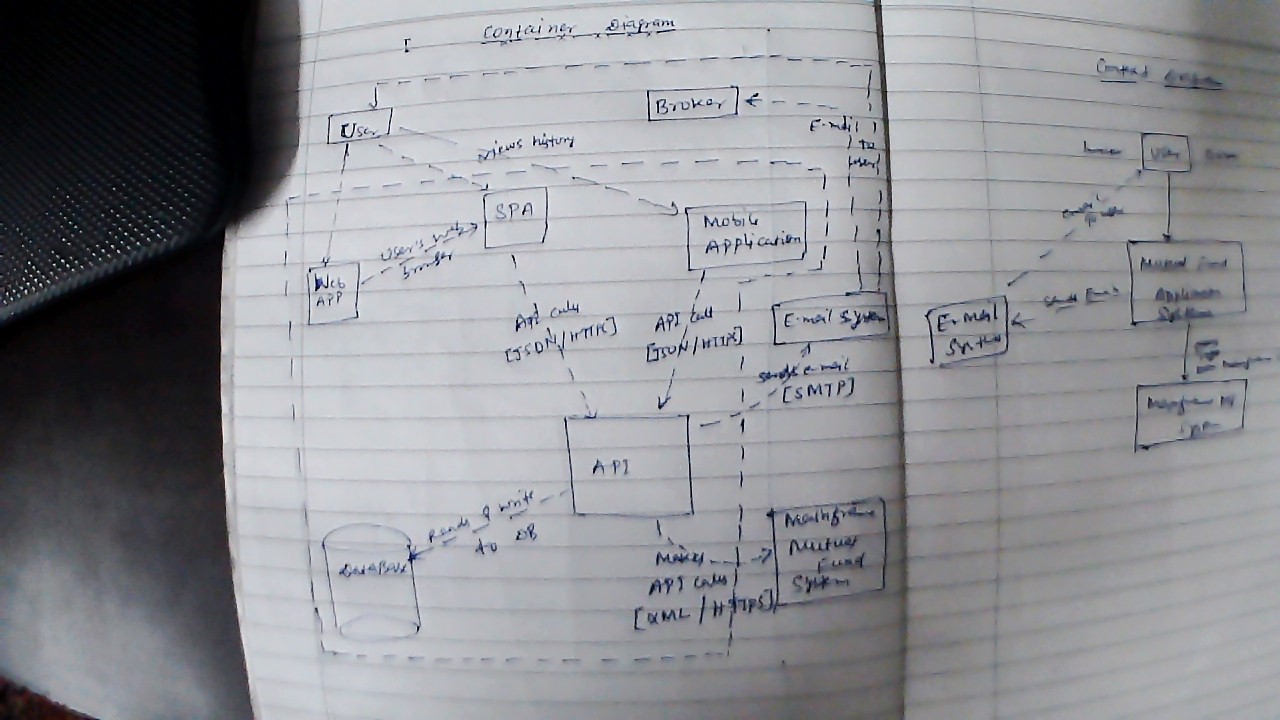 I
Container Diagram
User
Broker
E-mail
to
user
views history
SPA
Mobile
Application
Web
APP
User's web
browser
API calls
[JSON/HTTPS]
API call
[JSON/HTTPS]
E-mail System
sends e-mail
[SMTP]
API
Reads & write
to DB
DataBase
Makes
API calls
[XML/HTTPS]
Mainframe
Mutual
Fund
System
Context Diagram
User
Mutual Fund
Application
System
sends Email
E-mail
System